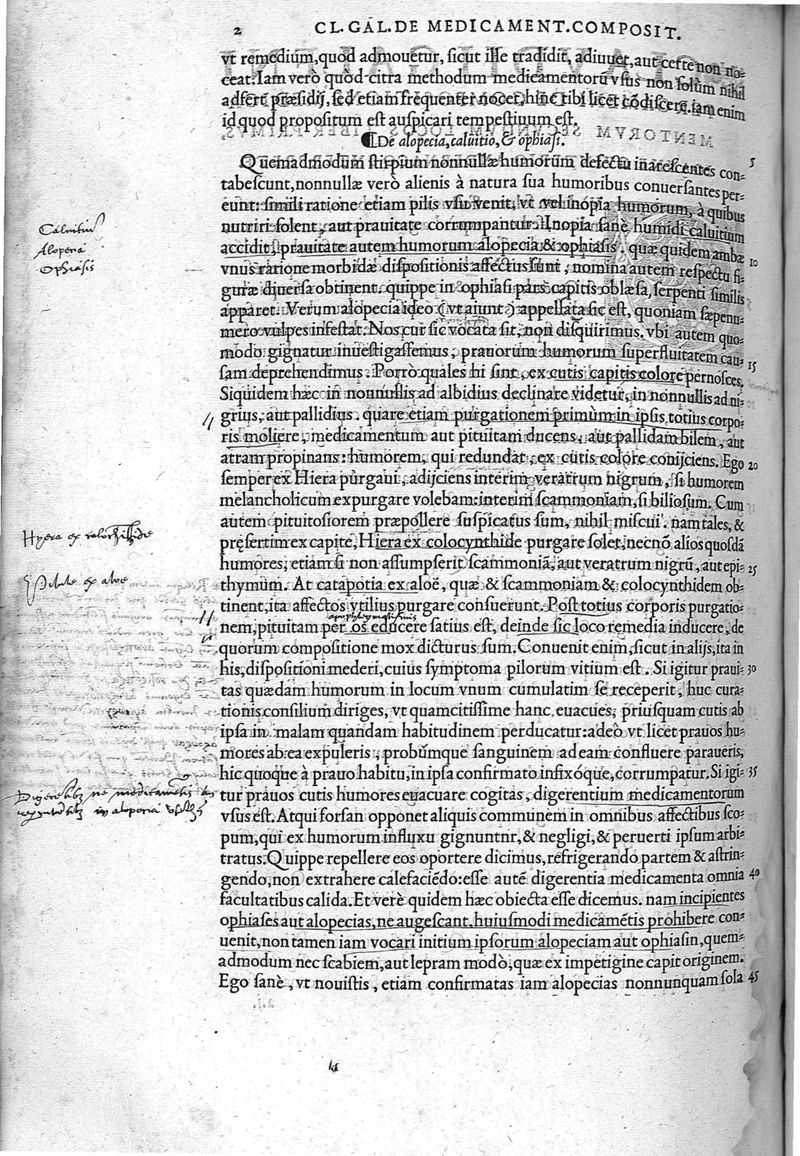 2 CL. GAL. DE MEDICAMENT. COMPOSIT.
vt remedium, quod admouetur, sicut ille tradidit, adiuuet, aut certe non no-
ceat. Iam verò quòd citra methodum medicamentorū vsus non solùm nihil
adfert præsidij, sed etiam frequenter nocet, hinc tibi licet cōdiscere. iam enim
id quod propositum est auspicari tempestiuum est.
¶De alopecia, caluitio, & ophiasi.
Quemadmodum stirpium nonnullæ humorum defectu inarescentes con- 5
tabescunt, nonnullæ verò alienis à natura sua humoribus conuersantes per-
eunt: simili ratione etiam pilis vsu venit, vt vel inopia humorum, à quibus
nutriri solent, aut prauitate corrumpantur. Inopia sanè humidi caluitium
accidit, prauitate autem humorum alopecia & ophiasis. quæ quidem ambæ
vnus ratione morbidæ dispositionis affectus sunt, nomina autem respectu fi- 10
guræ diuersa obtinent. quippe in ophiasi pars capitis oblæsa, serpenti similis
apparet. Verum alopecia ideo (vt aiunt) appellata sic est, quoniam sæpenu-
mero vulpes infestat. Nos cur sic vocata sit, non disquirimus. vbi autem quo-
modo gignatur inuestigassemus, prauorum humorum superfluitatem cau-
sam deprehendimus. Porrò quales hi sint, ex cutis capitis colore pernosces. 15
Siquidem hæc in nonnullis ad albidius declinare videtur, in nonnullis ad ni-
grius, aut pallidius. quare etiam purgationem primùm in ipsis totius corpo-
ris moliere, medicamentum aut pituitam ducens, aut pallidam bilem, aut
atram propinans: humorem, qui redundat, ex cutis colore conijciens. Ego 20
semper ex Hiera purgaui, adijciens interim veratrum nigrum, si humorem
melancholicum expurgare volebam: interim scammoniam, si biliosum. Cum
autem pituitosiorem præpollere suspicatus sum, nihil miscui. nam tales, &
præsertim ex capite, Hiera ex colocynthide purgare solet, necnō alios quosdā
humores, etiam si non assumpserit scammoniā, aut veratrum nigrū, aut epi- 25
thymum. At catapotia ex aloë, quæ & scammoniam & colocynthidem ob-
tinent, ita affectos vtilius purgare consuerunt. Post totius corporis purgatio-
nem, pituitam per os educere satius est, deinde sic loco remedia inducere, de
quorum compositione mox dicturus sum. Conuenit enim, sicut in alijs, ita in
his, dispositioni mederi, cuius symptoma pilorum vitium est. Si igitur praui- 30
tas quædam humorum in locum vnum cumulatim se receperit, huc cura-
tionis consilium diriges, vt quamcitissime hanc euacues, priusquam cutis ab
ipsa in malam quandam habitudinem perducatur: adeò vt licet prauos hu-
mores ab ea expuleris, probúmque sanguinem ad eam confluere paraueris,
hic quoque à prauo habitu, in ipsa confirmato infixóque, corrumpatur. Si igi- 35
tur prauos cutis humores euacuare cogitas, digerentium medicamentorum
vsus est. Atqui forsan opponet aliquis communem in omnibus affectibus sco-
pum, qui ex humorum influxu gignuntnr, & negligi, & peruerti ipsum arbi-
tratus. Quippe repellere eos oportere dicimus, refrigerando partem & astrin-
gendo, non extrahere calefaciēdo: esse autē digerentia medicamenta omnia 40
facultatibus calida. Et verè quidem hæc obiecta esse dicemus. nam incipientes
ophiases aut alopecias, ne augescant, huiusmodi medicamētis prohibere con-
uenit, non tamen iam vocari initium ipsorum alopeciam aut ophiasin, quem-
admodum nec scabiem, aut lepram modò, quæ ex impetigine capit originem.
Ego sanè, vt nouistis, etiam confirmatas iam alopecias nonnunquam sola 45
Caluitium
Alopecia
Ophiasis
Hyera ex
Pilulae ex aloe
ne medicamentis
in alopecia